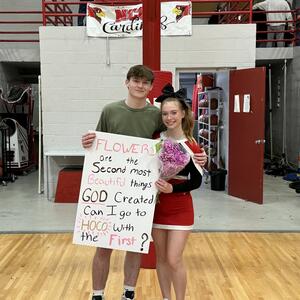 Cardinals
FLOWERS
are the
Second most
Beautiful things
GOD Created
Can I go to
HOCO With
the First?